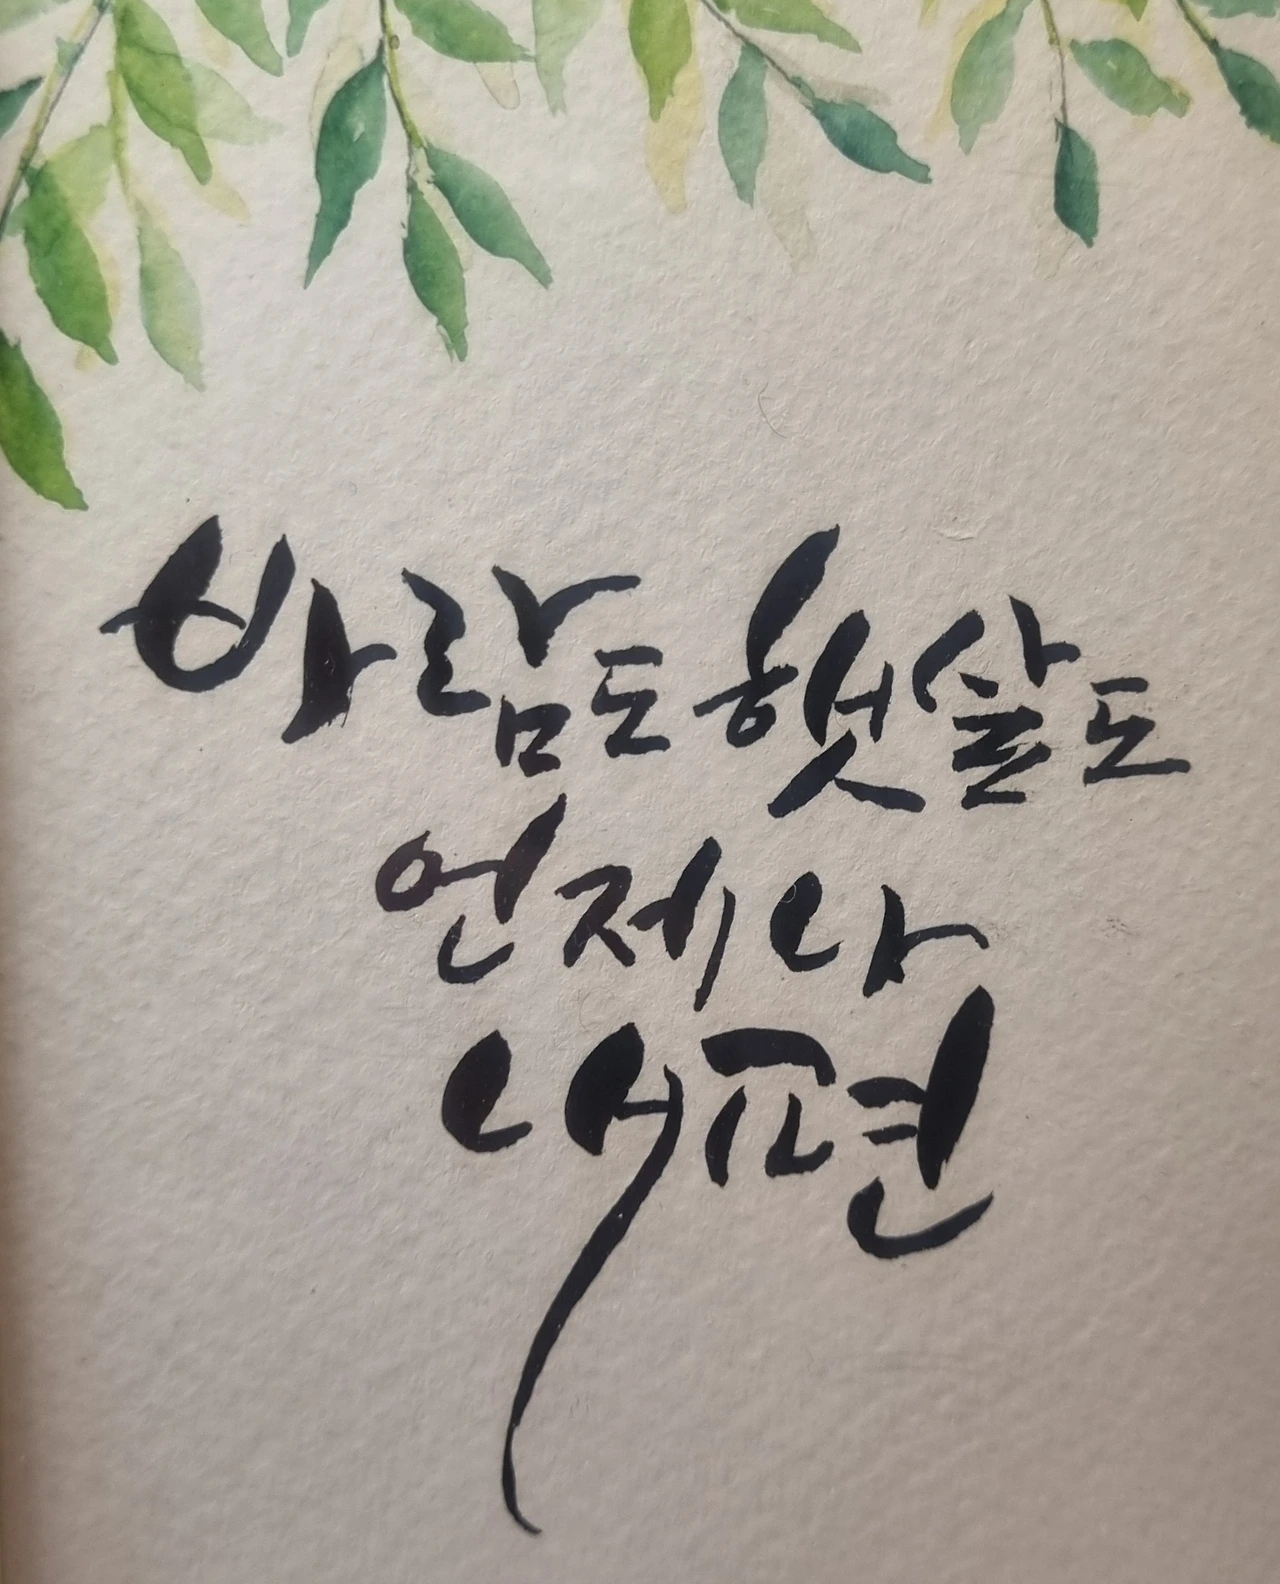 바람도 햇살도
언제나
내편